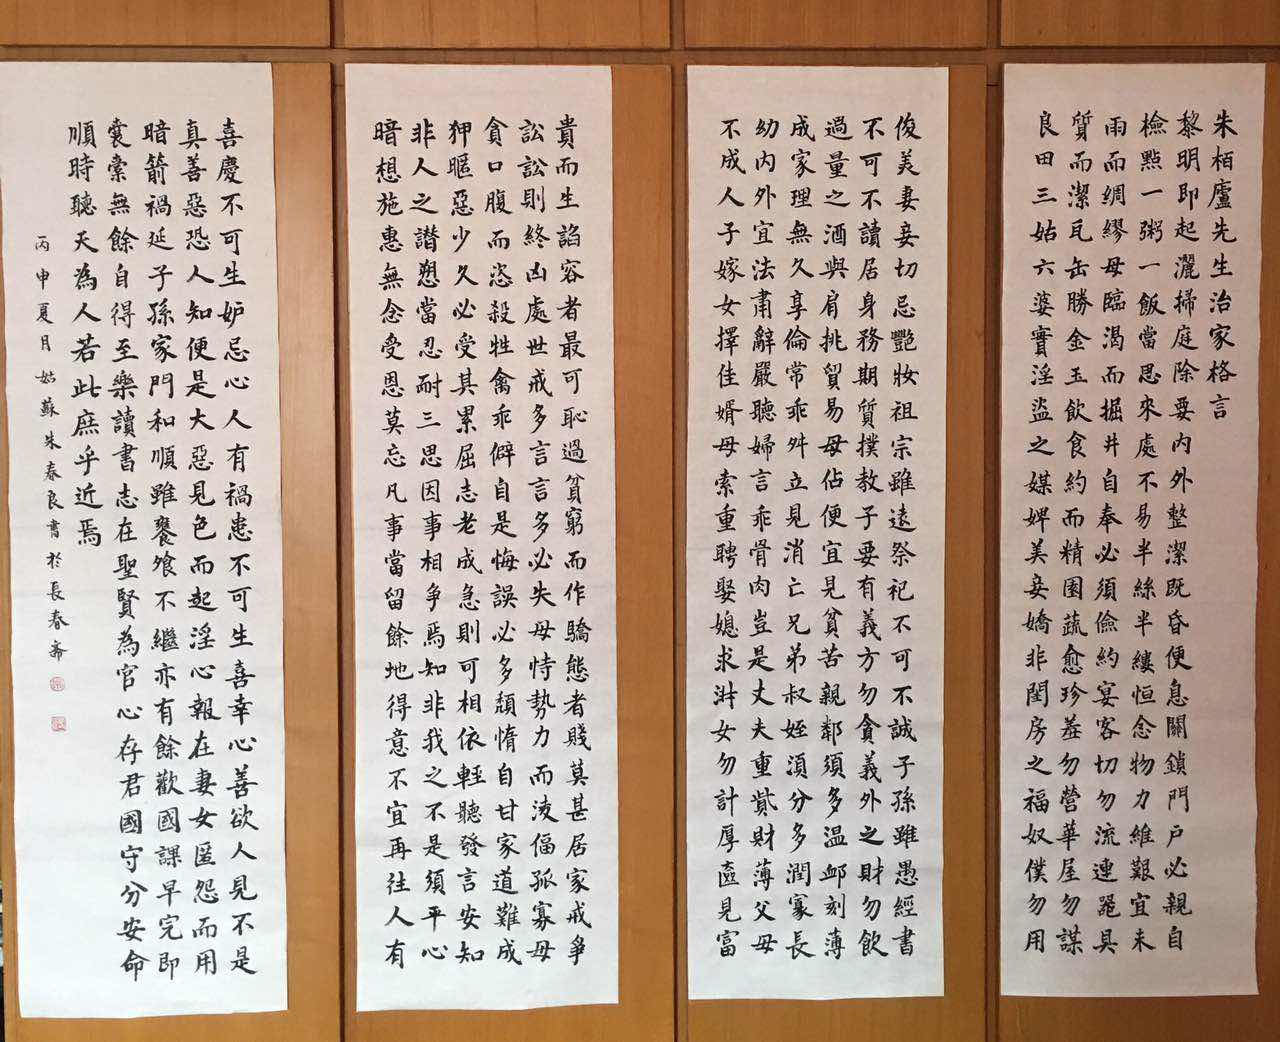 朱栢廬先生治家格言
黎明即起灑掃庭除要內外整潔既昏便息關鎖門户必親自
檢點一粥一飯當思來處不易半絲半縷恒念物力維艱宜未
雨而綢繆毋臨渴而掘井自奉必須儉約宴客切勿流連器具
質而潔瓦缶勝金玉飲食約而精園蔬愈珍羞勿營華屋勿謀
良田三姑六婆實淫盜之媒婢美妾嬌非閨房之福奴僕勿用
俊美妻妾切忌豔妝祖宗雖遠祭祀不可不誠子孫雖愚經書
不可不讀居身務期質撲教子要有義方勿貪義外之財勿飲
過量之酒與肩挑貿易毋佔便宜見貧苦親鄰須多温卹刻薄
成家理無久享倫常乖舛立見消亡兄弟叔姪須分多潤寡長
幼內外宜法肅辭嚴聽婦言乖骨肉豈是丈夫重貲財薄父母
不成人子嫁女擇佳婿毋索重聘娶媳求淑女勿計厚奩見富
貴而生諂容者最可恥過貧窮而作驕態者賤莫甚居家戒爭
訟訟則終凶處世戒多言言多必失毋恃勢力而淩偪孤寡毋
貪口腹而恣殺牲禽乖僻自是悔誤必多頹惰自甘家道難成
狎暱惡少久必受其累屈志老成急則可相依輕聽發言安知
非人之譖愬當忍耐三思因事相爭焉知非我之不是須平心
暗想施惠無念受恩莫忘凡事當留餘地得意不宜再往人有
喜慶不可生妒忌心人有禍患不可生喜幸心善欲人見不是
真善惡恐人知便是大惡見色而起淫心報在妻女匿怨而用
暗箭禍延子孫家門和順雖饔飧不繼亦有餘歡國課早完即
囊橐無餘自得至樂讀書志在聖賢為官心存君國守分安命
順時聽天為人若此庶乎近焉
丙申夏月姑蘇朱春良書於長春齋